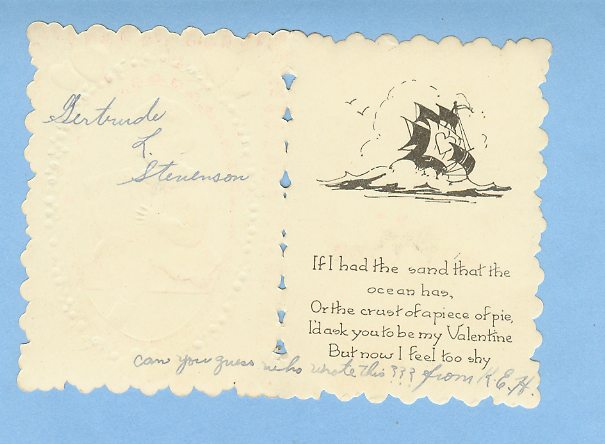 Gertrude
L.
Stevenson
If I had the sand that the
ocean has,
Or the crust of a piece of pie,
I'd ask you to be my Valentine
But now I feel too shy
can you guess who wrote this??? from K.E.H.